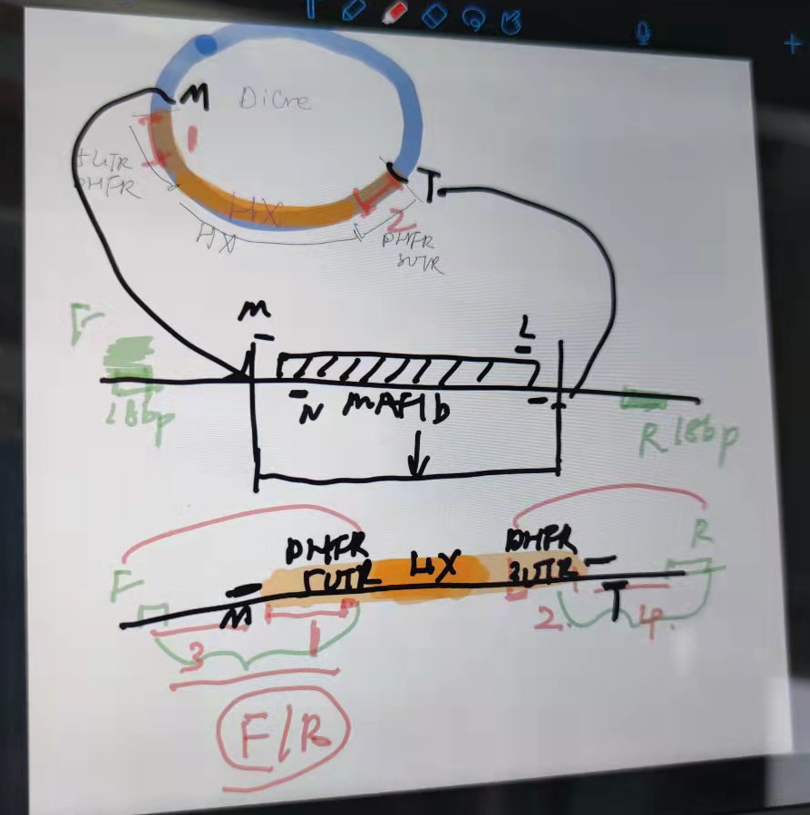 M DiCre
1
5UTR
DHFR
HX
HX
T
2
DHFR
3UTR
M
L
F
18bp
N MAF1b
R 18bp
DHFR
5UTR
HX
DHFR
3UTR
R
F
M
T
3
1
2.
4.
F/R